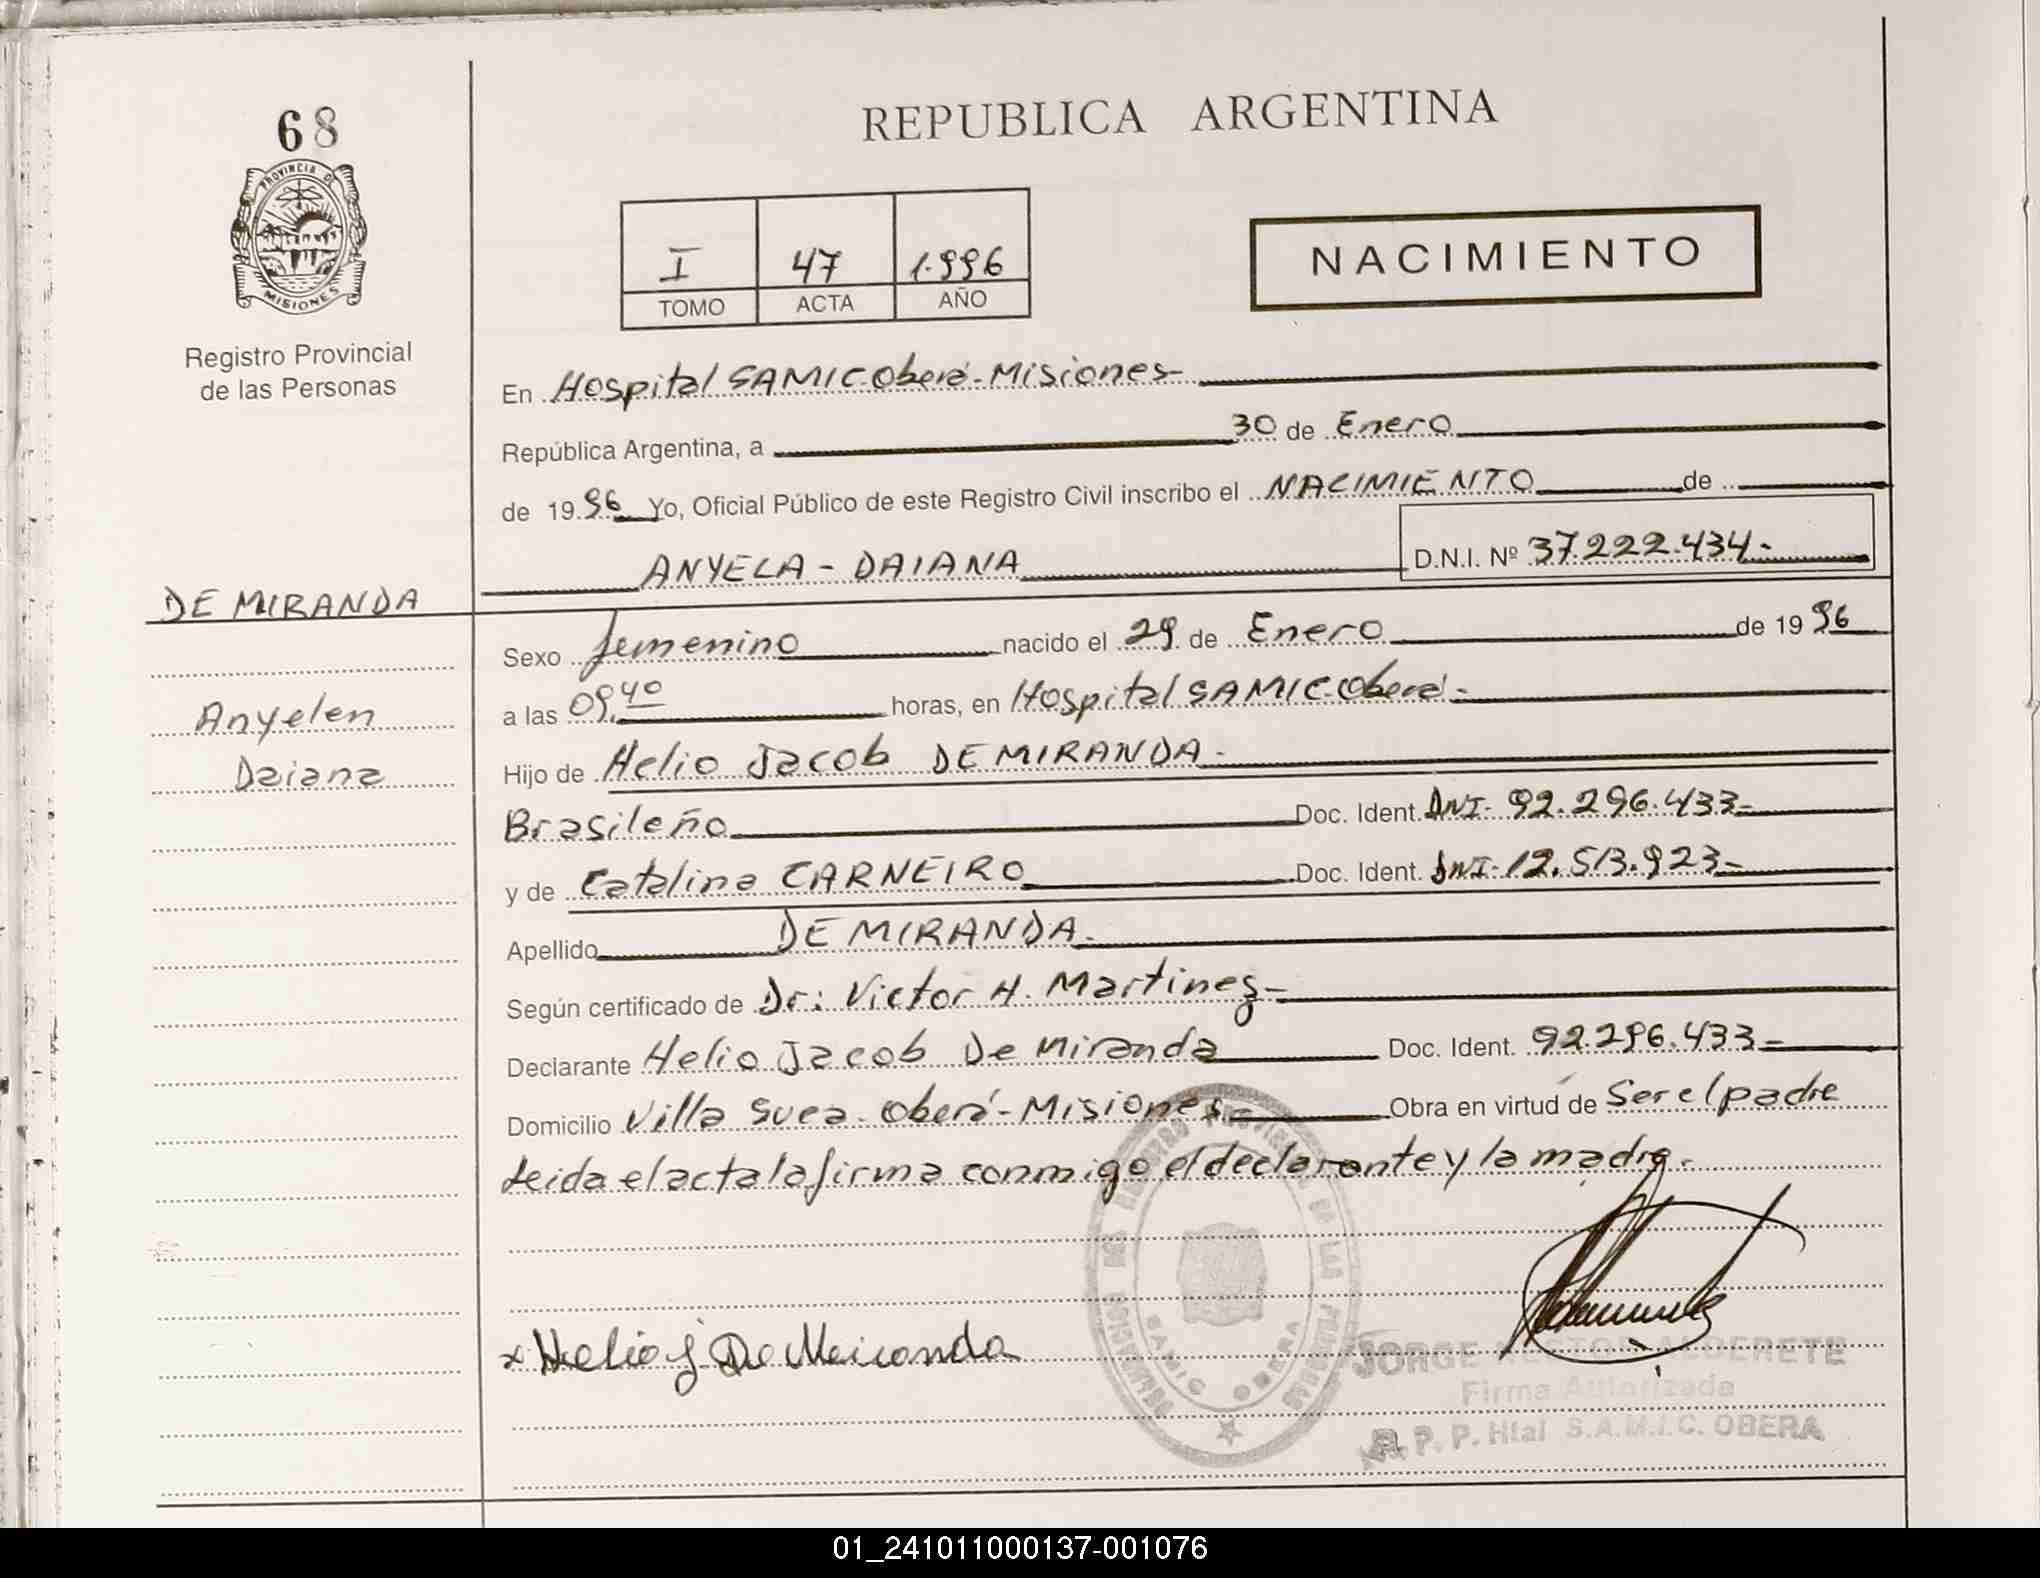 68
PROVINCIA DE
MISIONES
Registro Provincial
de las Personas
DE MIRANDA
Anyelen
Daiana
REPUBLICA ARGENTINA
I 47 1.996
TOMO ACTA AÑO
NACIMIENTO
En Hospital SAMIC-Oberá-Misiones-
República Argentina, a 30 de Enero
de 1996 Yo, Oficial Público de este Registro Civil inscribo el NACIMIENTO de
ANYELA - DAIANA D.N.I. Nº 37.222.434-
Sexo femenino nacido el 29 de Enero de 1996
a las 09,40 horas, en Hospital SAMIC-Oberá-
Hijo de Helio Jacob DE MIRANDA-
Brasileño Doc. Ident. DNI- 92.296.433-
y de Catalina CARNEIRO Doc. Ident. DNI-12.513.923-
Apellido DE MIRANDA-
Según certificado de Dr: Victor H. Martinez-
Declarante Helio Jacob De Miranda Doc. Ident. 92.296.433-
Domicilio Villa Svea-Oberá-Misiones- Obra en virtud de Ser el padre
Leida el acta la firma conmigo el declarante y la madre.
x Helio J. De Meiranda
SAMIC OBERA
JORGE NESTOR ALDERETE
Firma Autorizada
R. P. P. Htal S.A.M.I.C. OBERA
01_241011000137-001076